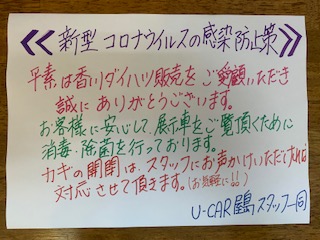 ≪新型コロナウイルスの感染防止策≫
平素は香川ダイハツ販売をご愛顧いただき
誠にありがとうございます。
お客様に安心して、展示車をご覧頂くために
消毒・除菌を行っております。
カギの開閉は、スタッフにお声かけいただければ
対応させて頂きます。(お気軽に!!)
U-CAR屋島スタッフ一同